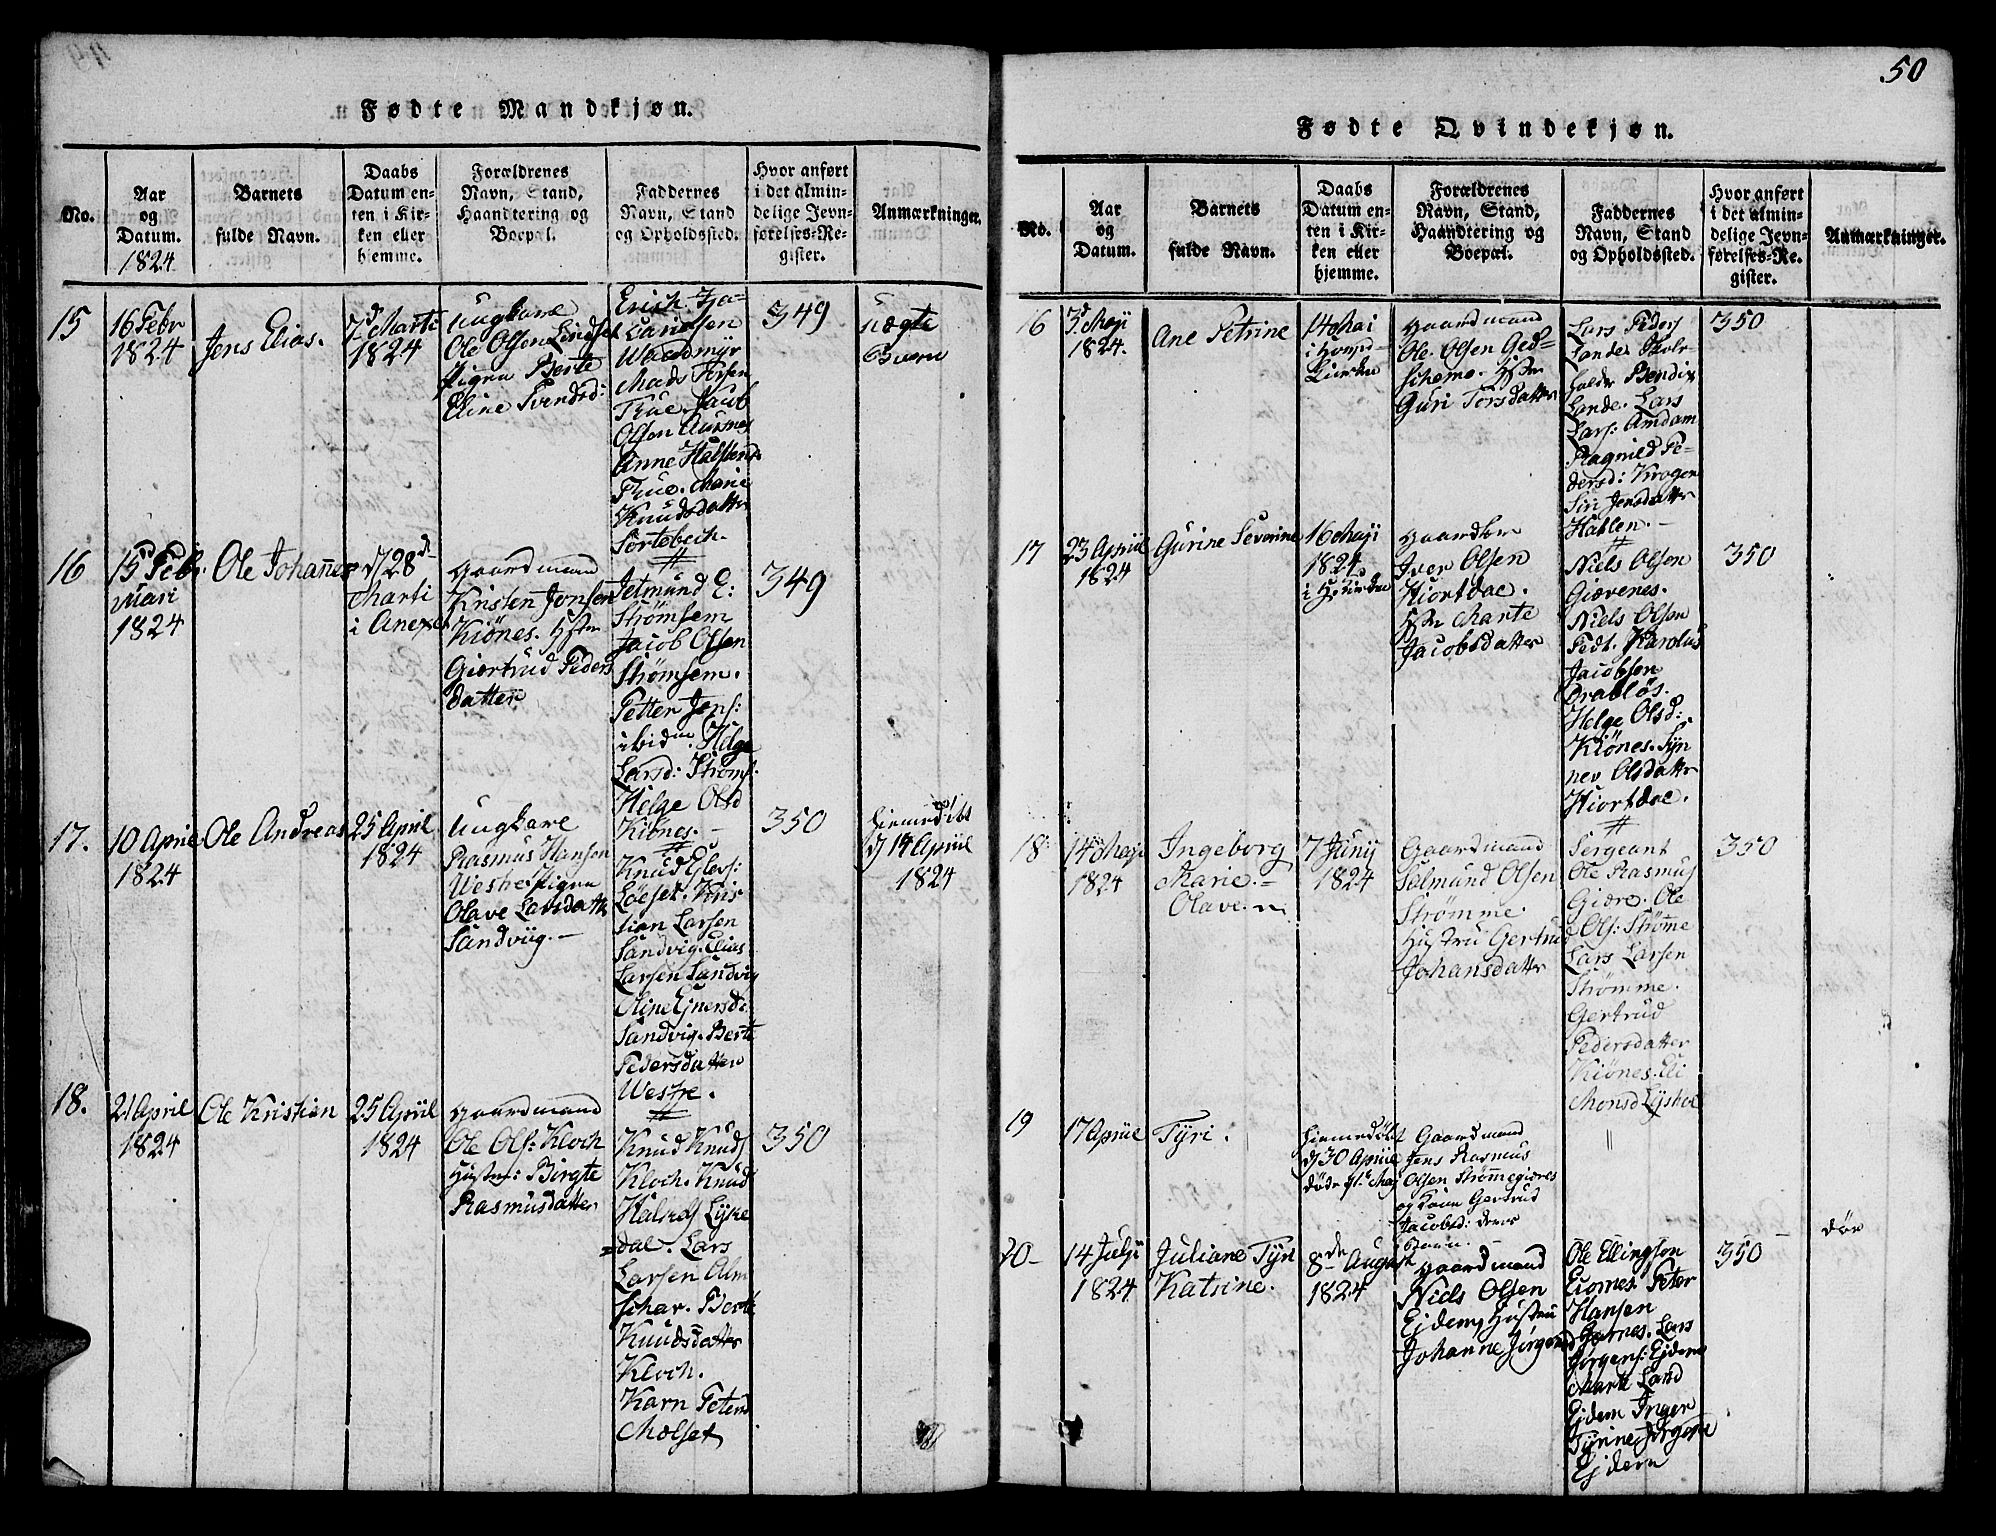 Fødte Mandkjøn.
No.
Aar
og
Datum.
1824
Barnets
fulde Navn.
Daabs
Datum en-
ten i Kir-
ken eller
hjemme.
Forældrenes
Navn, Stand,
Haandtering og
Boepæl.
Faddernes
Navn, Stand
og Opholdssted.
Hvor anført
i det almin-
delige Jevn-
førelses-Re-
gister.
Anmærkninger.
15
16 Febr
1824
Jens Elias.
7d Marti
1824
Ungkare
Ole Olsen Lindset
Pigen Berte
Eline Svendsd:
Erich
Mads
True. Jacob
Olsen Aursnes
Anne
True. Marie
Knudsdatter
Sortebech.
349
uægte
Barn
16
15 Feb.
Mari
1824
Ole Johannes
d 28d
Marti
i Anexet
Gaardmand
Kristen Jonsen
Kiönes. Hstr
Giertrud Peders
datter
Jetmund E:
Strømsem
Jacob Olsen
Strømsem.
Petter Jens:
ibidm. Helge
Larsd: Strøms:
Helge Olsd
Kiönes.
349
17.
10 April
1824
Ole Andreas
25 April
1824
Ungkare
Rasmus Hansen
Westre Pigen
Olave Larsdatter
Sandviig.
Knud
Løeset. Kris
tian Larsen
Sandvig. Elias
Larsen Sandvig
Oline Ejnersd:
Sandvig. Berte
Pedersdatter
Westre.
350
hiemedöbt
d 14 April
1824
18.
21 April
1824
Ole Kristian
25 April
1824
Gaardmand
Ole Ols: Kloch
Hustru: Birgte
Rasmusdatter
Knud Knuds
Kloch. Knud
dal. Lars
Larsen
Berte
Knudsdatter
Kloch.
Karn Petersd
Molset
350
50
Fødte Qvindekjøn.
No.
Aar
og
Datum.
Barnets
fulde Navn.
Daabs
Datum en-
ten i Kir-
ken eller
hjemme.
Forældrenes
Navn, Stand,
Haandtering og
Boepæl.
Faddernes
Navn, Stand
og Opholdssted.
Hvor anført
i det almin-
delige Jevn-
førelses-Re-
gister.
Anmærkninger.
16
3d Maji
1824.
Ane Petrine
Gaardmand
Ole Olsen
Guri Torsdatter
Lars Peders
Lande
Bendix
Lande. Lars
Lars: Amdam
Ragnild Pe-
dersd: Krogen
Siri Jensdatter
Hatlen.
350
17
23 April
1824
Gurine Severine
16 Maji
1824
Iver Olsen
Hiortdae.
Hstr Marte
Jacobsdatter
Niels Olsen
Giævenes.
Niels Olsen
Karolus
Jacobsen
Drabløs.
Helge Olsd:
Kiönes. Syn
nev Olsdatter
Hiortdae.
350
18
14 Maji
1824
Ingeborg
Marie.
Olave.
7 Junij
1824
Gaardmand
Salmund Olsen
Strømme.
Hustru Gertrud
Johansdatter
Sergeant
Ole Rasmus
Giære. Ole
Ols: Strømme
Lars Larsen
Strømme.
Gertrud
Pedersdatter
Kiönes. Eli
Monsd
350
19
17 April
Tyri.
hiemedöbt
d 30 April
döde 1. Maj
Gaardmand
Jens Rasmus
Olsen Strømmegiæres
og Kone Gertrud
Jacobsd: deres
Barn.
død
20
14 Julji
1824
Juliane Tyri
Katrine.
8de August
1824
Gaardmand
Niels Olsen
Ejdem, Hustru
Johanne Jørgensd
Ole Ellingsen
Peter
Hansen
Lars
Jørgens: Ejdem
Marte Land
Ejdem Inger
Tyrine
Ejdem
350